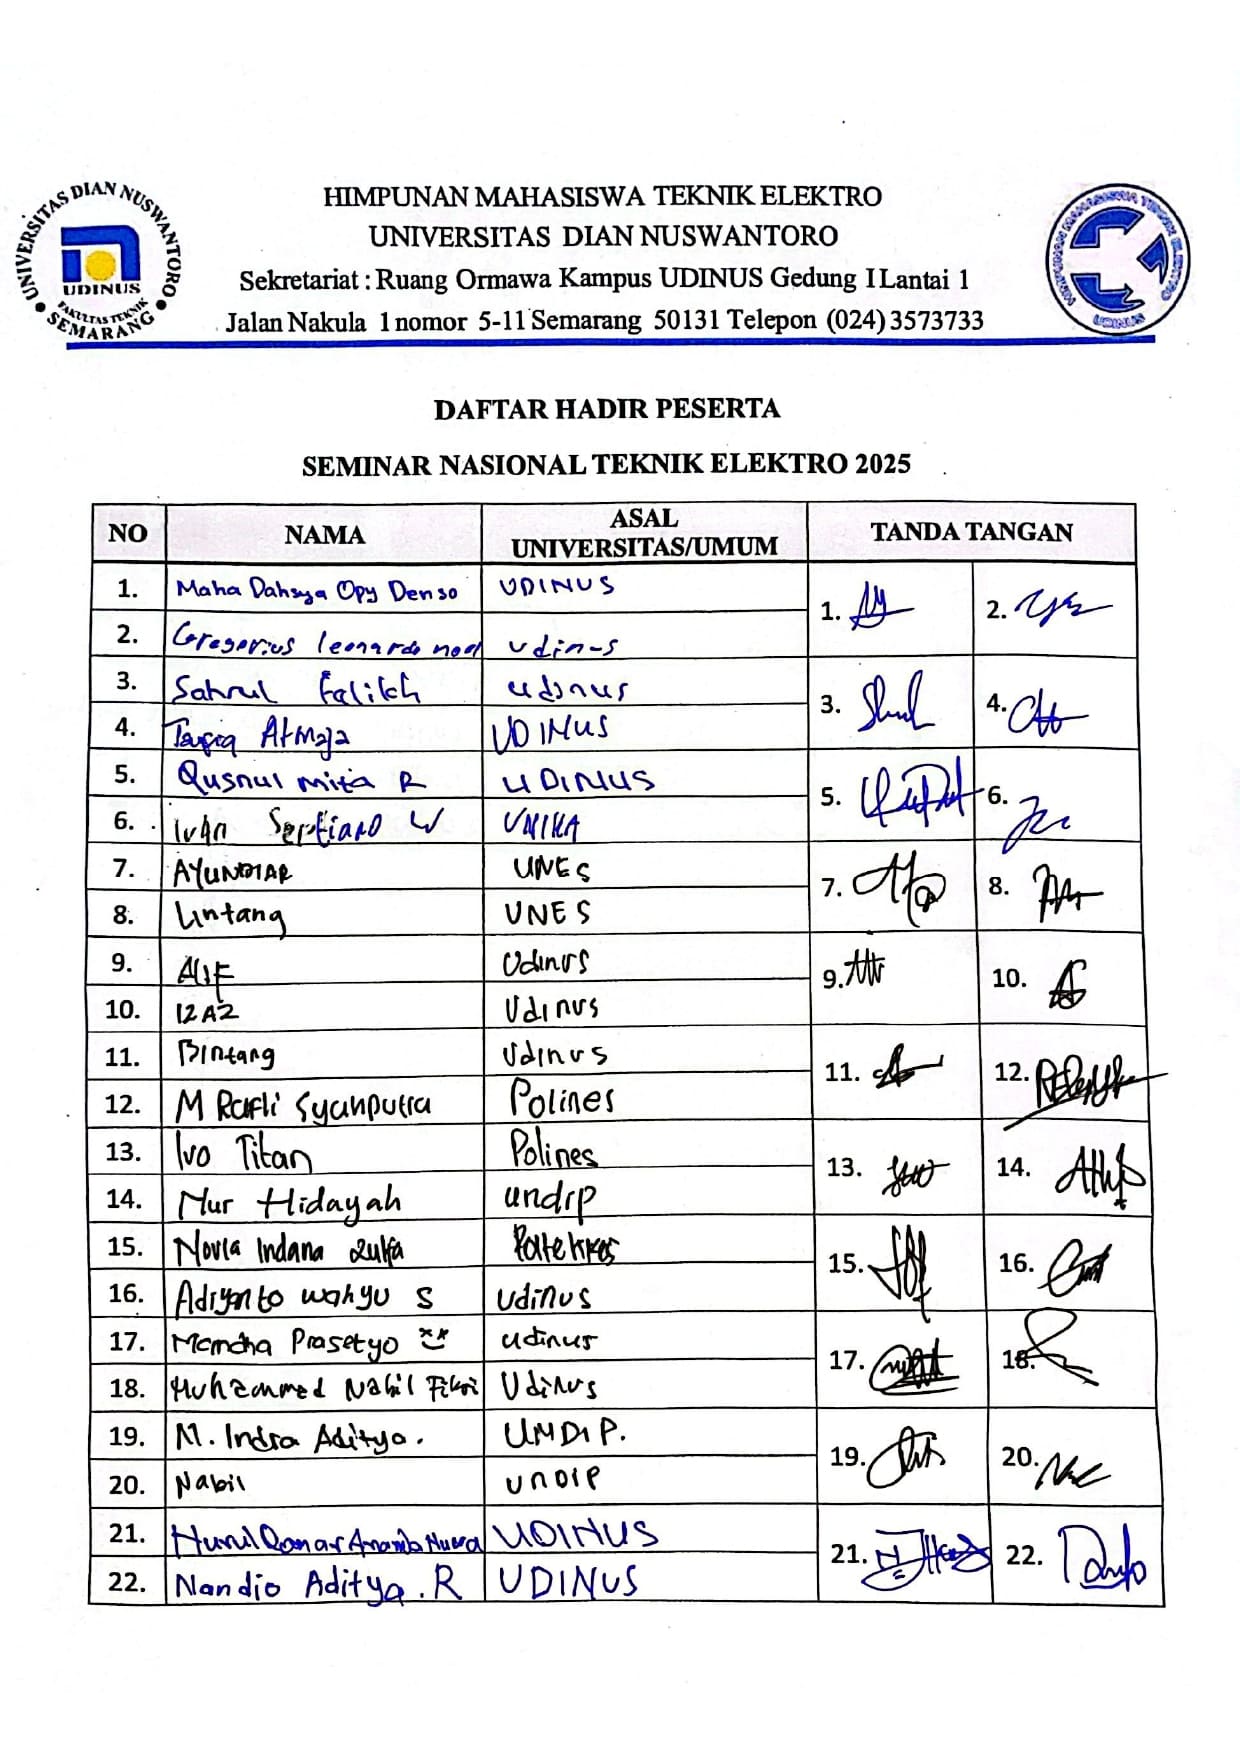 UNIVERSITAS DIAN NUSWANTORO
UDINUS
FAKULTAS TEKNIK
SEMARANG
HIMPUNAN MAHASISWA TEKNIK ELEKTRO
UNIVERSITAS DIAN NUSWANTORO
Sekretariat : Ruang Ormawa Kampus UDINUS Gedung I Lantai 1
Jalan Nakula 1 nomor 5-11 Semarang 50131 Telepon (024) 3573733
HIMPUNAN MAHASISWA TEKNIK ELEKTRO
UDINUS
DAFTAR HADIR PESERTA
SEMINAR NASIONAL TEKNIK ELEKTRO 2025
NO NAMA ASAL UNIVERSITAS/UMUM TANDA TANGAN
1. Maha Dahsya Opy Denso UDINUS 1. 2.
2. Gregorius leonardo noel udinus
3. Sahrul Falikh udinus 3. 4.
4. Atmaja UDINUS
5. Qusnul mita R UDINUS 5. 6.
6. Ivan Septiano W UNIKA
7. AYUNDIAR UNES 7. 8.
8. Lintang UNES
9. Alif Udinus 9. 10.
10. IZAZ Udinus
11. Bintang Udinus 11. 12.
12. M Rafli Syahputra Polines
13. Ivo Titan Polines 13. 14.
14. Nur Hidayah undip
15. Novia Indana Zulfa Poltekkes 15. 16.
16. Adiyanto wahyu S udinus
17. Prasetyo udinus 17. 18.
18. Muhammed Nabil Fikri Udinus
19. M. Indra Aditya. UNDIP. 19. 20.
20. Nabil UNDIP
21. Nurul Qomar UDINUS 21. 22.
22. Nandio Aditya.R UDINUS